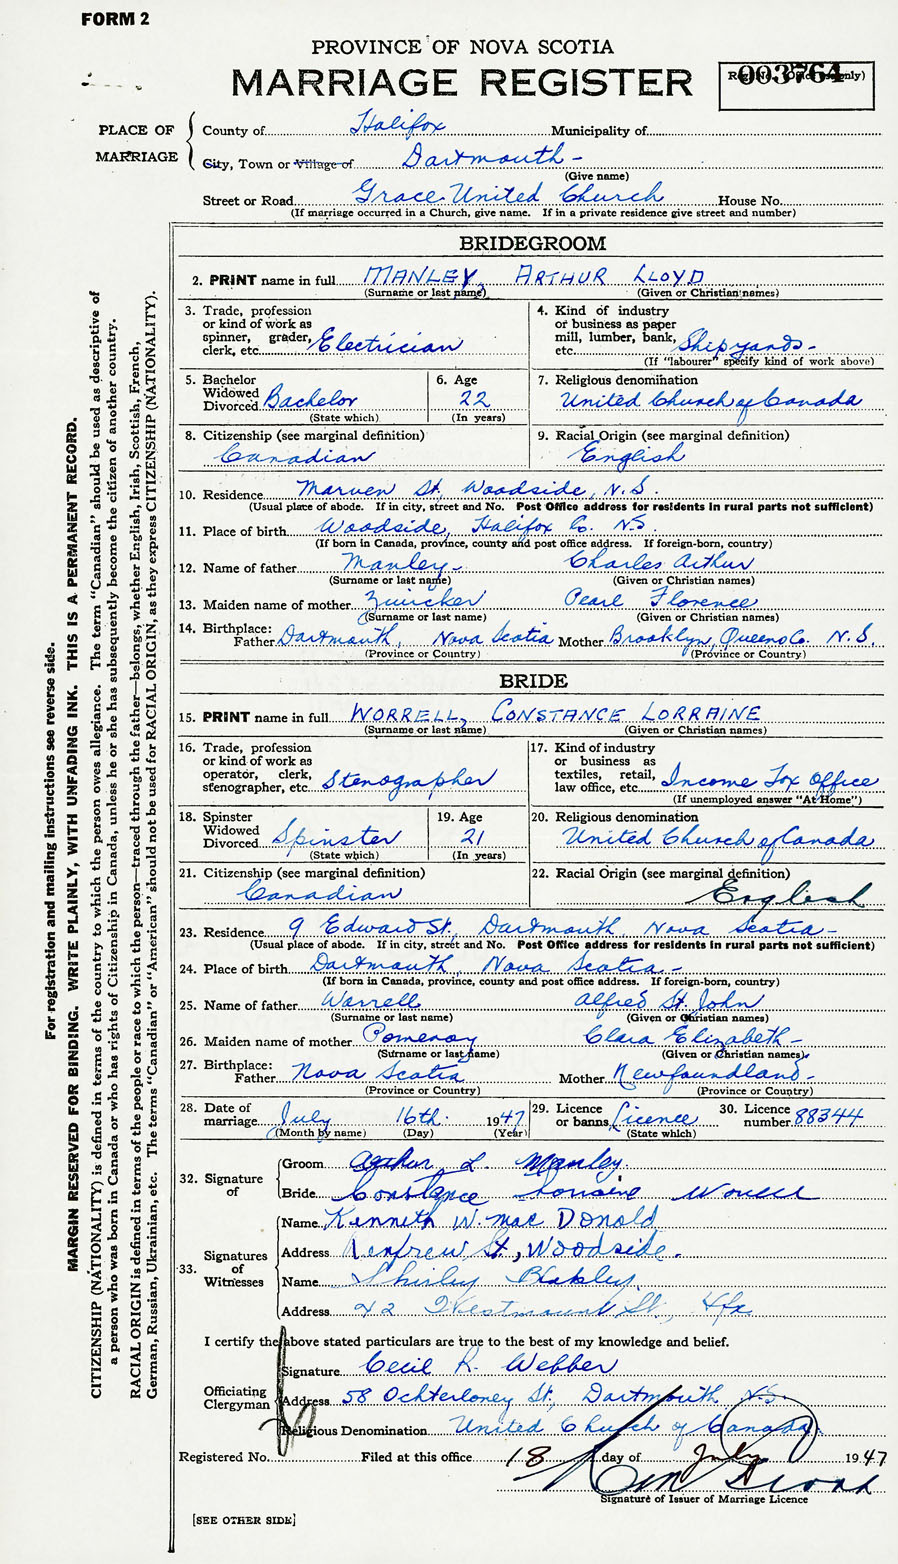 FORM 2
PROVINCE OF NOVA SCOTIA
MARRIAGE REGISTER
Reg. No. (Office use only)
003764
PLACE OF MARRIAGE
County of Halifax Municipality of
City, Town or Village of Dartmouth -
(Give name)
Street or Road Grace United Church House No.
(If marriage occurred in a Church, give name. If in a private residence give street and number)
BRIDEGROOM
2. PRINT name in full MANLEY, ARTHUR LLOYD
(Surname or last name) (Given or Christian names)
3. Trade, profession or kind of work as spinner, grader, clerk, etc. Electrician
4. Kind of industry or business as paper mill, lumber, bank, etc. Shipyards -
(If "labourer" specify kind of work above)
5. Bachelor Widowed Divorced Bachelor
(State which)
6. Age 22
(In years)
7. Religious denomination
United Church of Canada
8. Citizenship (see marginal definition)
Canadian
9. Racial Origin (see marginal definition)
English
10. Residence Marven St, Woodside, N.S.
(Usual place of abode. If in city, street and No. Post Office address for residents in rural parts not sufficient)
11. Place of birth Woodside, Halifax Co. N.S
(If born in Canada, province, county and post office address. If foreign-born, country)
12. Name of father Manley - Charles Arthur
(Surname or last name) (Given or Christian names)
13. Maiden name of mother Zwicker Pearl Florence
(Surname or last name) (Given or Christian names)
14. Birthplace: Father Dartmouth, Nova Scotia Mother Brooklyn, Queens Co. N.S.
(Province or Country) (Province or Country)
BRIDE
15. PRINT name in full WORRELL, CONSTANCE LORRAINE
(Surname or last name) (Given or Christian names)
16. Trade, profession or kind of work as operator, clerk, stenographer, etc. Stenographer
17. Kind of industry or business as textiles, retail, law office, etc. Income Tax Office
(If unemployed answer "At Home")
18. Spinster Widowed Divorced Spinster
(State which)
19. Age 21
(In years)
20. Religious denomination
United Church of Canada
21. Citizenship (see marginal definition)
Canadian
22. Racial Origin (see marginal definition)
English
23. Residence 9 Edward St., Dartmouth Nova Scotia -
(Usual place of abode. If in city, street and No. Post Office address for residents in rural parts not sufficient)
24. Place of birth Dartmouth, Nova Scotia -
(If born in Canada, province, county and post office address. If foreign-born, country)
25. Name of father Worrell Alfred St. John
(Surname or last name) (Given or Christian names)
26. Maiden name of mother Pomeroy Clara Elizabeth -
(Surname or last name) (Given or Christian names)
27. Birthplace: Father Nova Scotia Mother Newfoundland -
(Province or Country) (Province or Country)
28. Date of marriage July 16th 1947
(Month by name) (Day) (Year)
29. Licence or banns Licence
(State which)
30. Licence number 88344
32. Signature of
Groom Arthur L. Manley
Bride Constance Lorraine Worrell
33. Signatures of Witnesses
Name Kenneth W. MacDonald
Address Renfrew St., Woodside.
Name Shirley Blakley
Address 42 Westmount St., Hfx
I certify the above stated particulars are true to the best of my knowledge and belief.
Officiating Clergyman
Signature Cecil R. Webber
Address 58 Ochterloney St, Dartmouth N.S.
Religious Denomination United Church of Canada
Registered No. Filed at this office 18 day of July 1947
Signature of Issuer of Marriage Licence
[SEE OTHER SIDE]
For registration and mailing instructions see reverse side.
MARGIN RESERVED FOR BINDING. WRITE PLAINLY, WITH UNFADING INK. THIS IS A PERMANENT RECORD.
CITIZENSHIP (NATIONALITY) is defined in terms of the country to which the person owes allegiance. The term "Canadian" should be used as descriptive of
a person who was born in Canada or who has rights of Citizenship in Canada, unless he or she has subsequently become the citizen of another country.
RACIAL ORIGIN is defined in terms of the people or race to which the person—traced through the father—belongs, whether English, Irish, Scottish, French,
German, Russian, Ukrainian, etc. The terms "Canadian" or "American" should not be used for RACIAL ORIGIN, as they express CITIZENSHIP (NATIONALITY).